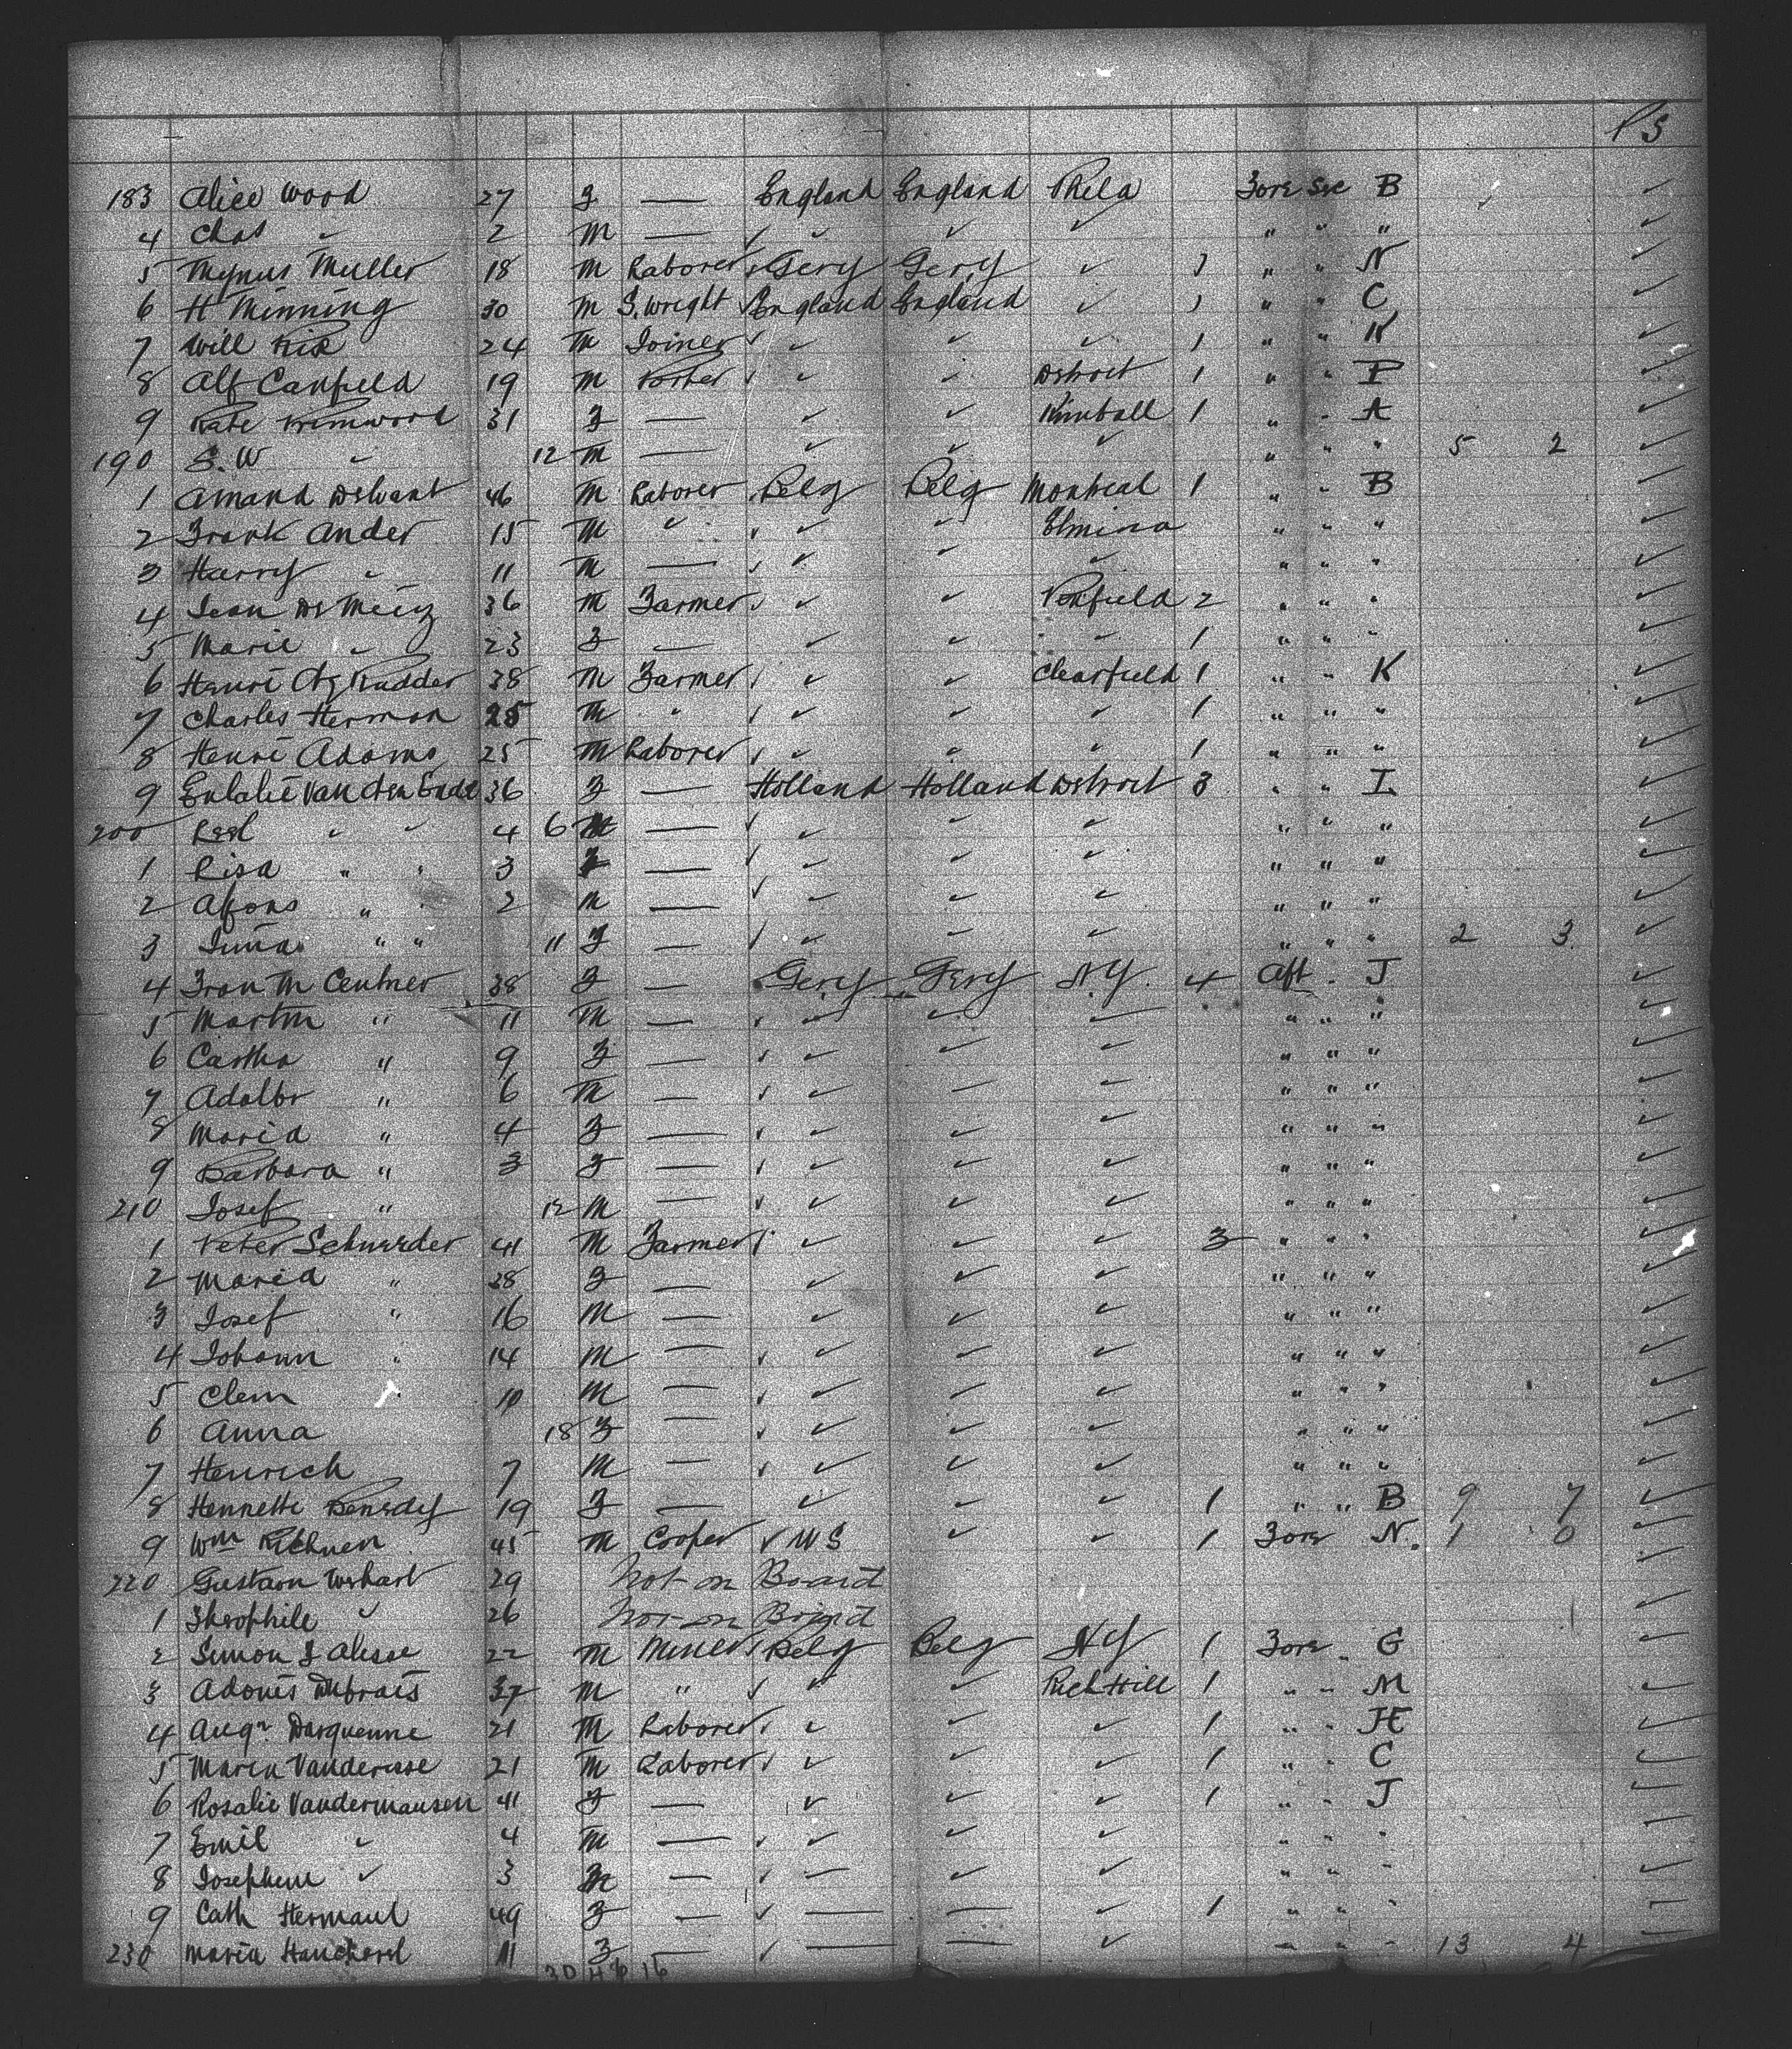 P 5
183 Alice Wood 27 F — England England Phila Fore Sec B ✓
4 Chas ✓ 2 M — ✓ ✓ ✓ ✓ " " " ✓
5 Mynus Muller 18 M Laborer ✓ Gery Gery ✓ 1 " " N ✓
6 H Minning 30 M S. Wright ✓ England England ✓ 1 " " C ✓
7 Will 24 M Joiner ✓ ✓ ✓ ✓ 1 " " K ✓
8 Alf Canfield 19 M Porter ✓ ✓ ✓ Detroit 1 " " P ✓
9 Kate Primwood 31 F — ✓ ✓ Kimball 1 " " A ✓
190 S. W ✓ 12 M — ✓ ✓ ✓ " " " 5 2 ✓
1 Amand Delvant 46 M Laborer Belg Belg Montreal 1 " " B ✓
2 Frank Ander 15 M " ✓ ✓ ✓ Elmira " " " ✓
3 Harry ✓ 11 M — ✓ ✓ ✓ ✓ " " " ✓
4 Jean De 36 M Farmer ✓ ✓ ✓ Penfield 2 " " " ✓
5 Marie ✓ 23 F — ✓ ✓ ✓ 1 " " " ✓
6 Henri Rudder 38 M Farmer ✓ ✓ ✓ Clearfield 1 " " K ✓
7 Charles Herman 25 M " ✓ ✓ ✓ ✓ 1 " " " ✓
8 Henri Adams 25 M Laborer ✓ ✓ ✓ ✓ 1 " " " ✓
9 Eulalie Van den Ende 36 F — Holland Holland Detroit 3 " " I ✓
200 ✓ ✓ 4 6 M — ✓ ✓ ✓ ✓ " " " ✓
1 Lisa " " 3 F — ✓ ✓ ✓ ✓ " " " ✓
2 Afons " " 2 M — ✓ ✓ ✓ ✓ " " " ✓
3 " " 11 F — ✓ ✓ ✓ ✓ " " " 2 3 ✓
4 Fran M Centner 38 F — Gery Gery N.Y. 4 Aft " J ✓
5 Martin " 11 M — ✓ ✓ ✓ ✓ " " " ✓
6 Cartha " 9 F — ✓ ✓ ✓ ✓ " " " ✓
7 Adalbr " 6 M — ✓ ✓ ✓ ✓ " " " ✓
8 Maria " 4 F — ✓ ✓ ✓ ✓ " " " ✓
9 Barbara " 3 F — ✓ ✓ ✓ ✓ " " " ✓
210 Josef " 12 M — ✓ ✓ ✓ ✓ " " " ✓
1 Peter Schneider 41 M Farmer ✓ ✓ ✓ ✓ 3 " " " ✓
2 Maria " 38 F — ✓ ✓ ✓ " " " ✓
3 Josef " 16 M — ✓ ✓ ✓ " " " ✓
4 Johann " 14 M — ✓ ✓ ✓ ✓ " " " ✓
5 Clem " 10 M — ✓ ✓ ✓ ✓ " " " ✓
6 Anna 18 F — ✓ ✓ ✓ ✓ " " " ✓
7 Henrich 7 M — ✓ ✓ ✓ ✓ " " " ✓
8 Hennette 19 F — ✓ ✓ ✓ 1 " " B 9 7 ✓
9 Wm 45 M Cooper ✓ U S ✓ ✓ 1 Fore N. 1 0 ✓
220 Gustav 29 Not on Board
1 Theophile ✓ 26 Not on Board
2 Simon 22 M Miner ✓ Belg Belg NY 1 Fore " G ✓
3 Adonis 37 M " ✓ ✓ ✓ Rich Hill 1 " " M ✓
4 Augr. Darquenne 21 M Laborer ✓ ✓ ✓ ✓ 1 " " H ✓
5 Maria Vanderisse 21 M Laborer ✓ ✓ ✓ ✓ 1 " " C ✓
6 Rosalie Vandermausen 41 F — ✓ ✓ ✓ 1 " " J ✓
7 Emil ✓ 4 M — ✓ ✓ ✓ ✓ " " " ✓
8 Josephine ✓ 3 — ✓ — ✓ ✓ " " " ✓
9 Cath Hermaul 49 F — ✓ — — ✓ 1 " " " ✓
230 Maria 11 F — ✓ — — ✓ " " " 13 4
30 46 16